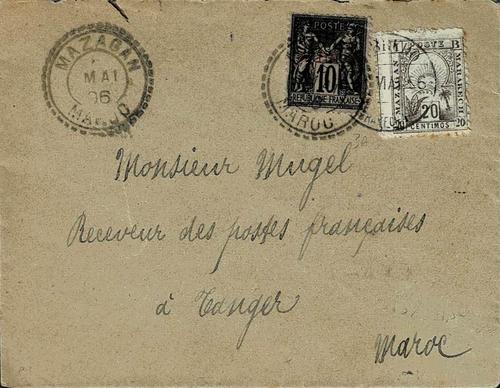 MAZAGAN
MAI
96
MAROC
POSTES
10
REPUBLIQUE FRANÇAISE
MAROC
POSTE
B
MAZAGAN
MARAKECH
MAI
20
20
CENTIMOS
Monsieur Mugel
Receveur des postes françaises
à Tanger
Maroc